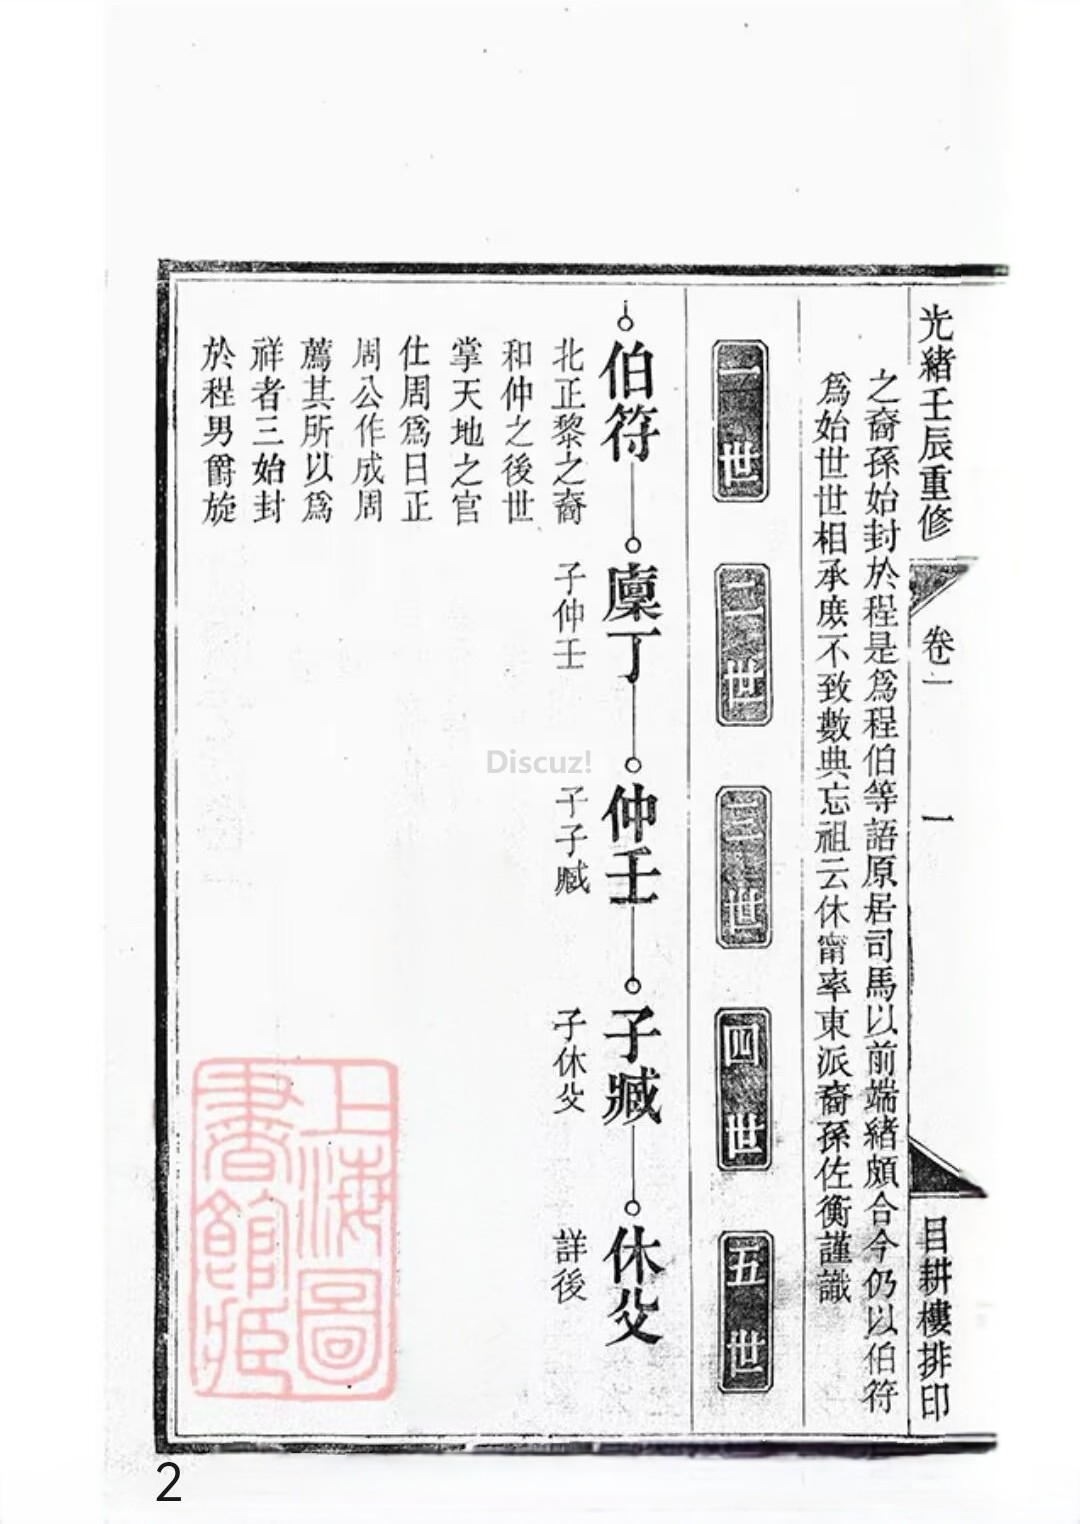 光緒壬辰重修
卷一
一
目耕樓排印
之裔孫始封於程是爲程伯等語原居司馬以前端緒頗合今仍以伯符
爲始世世相承庶不致數典忘祖云休甯率東派裔孫佐衡謹識
一世
二世
三世
四世
五世
伯符
北正黎之裔
和仲之後世
掌天地之官
仕周爲日正
周公作成周
薦其所以爲
祥者三始封
於程男爵旋
廩丁
子仲壬
仲壬
子子臧
子臧
子休父
休父
詳後
上海圖
書館藏
Discuz!
2